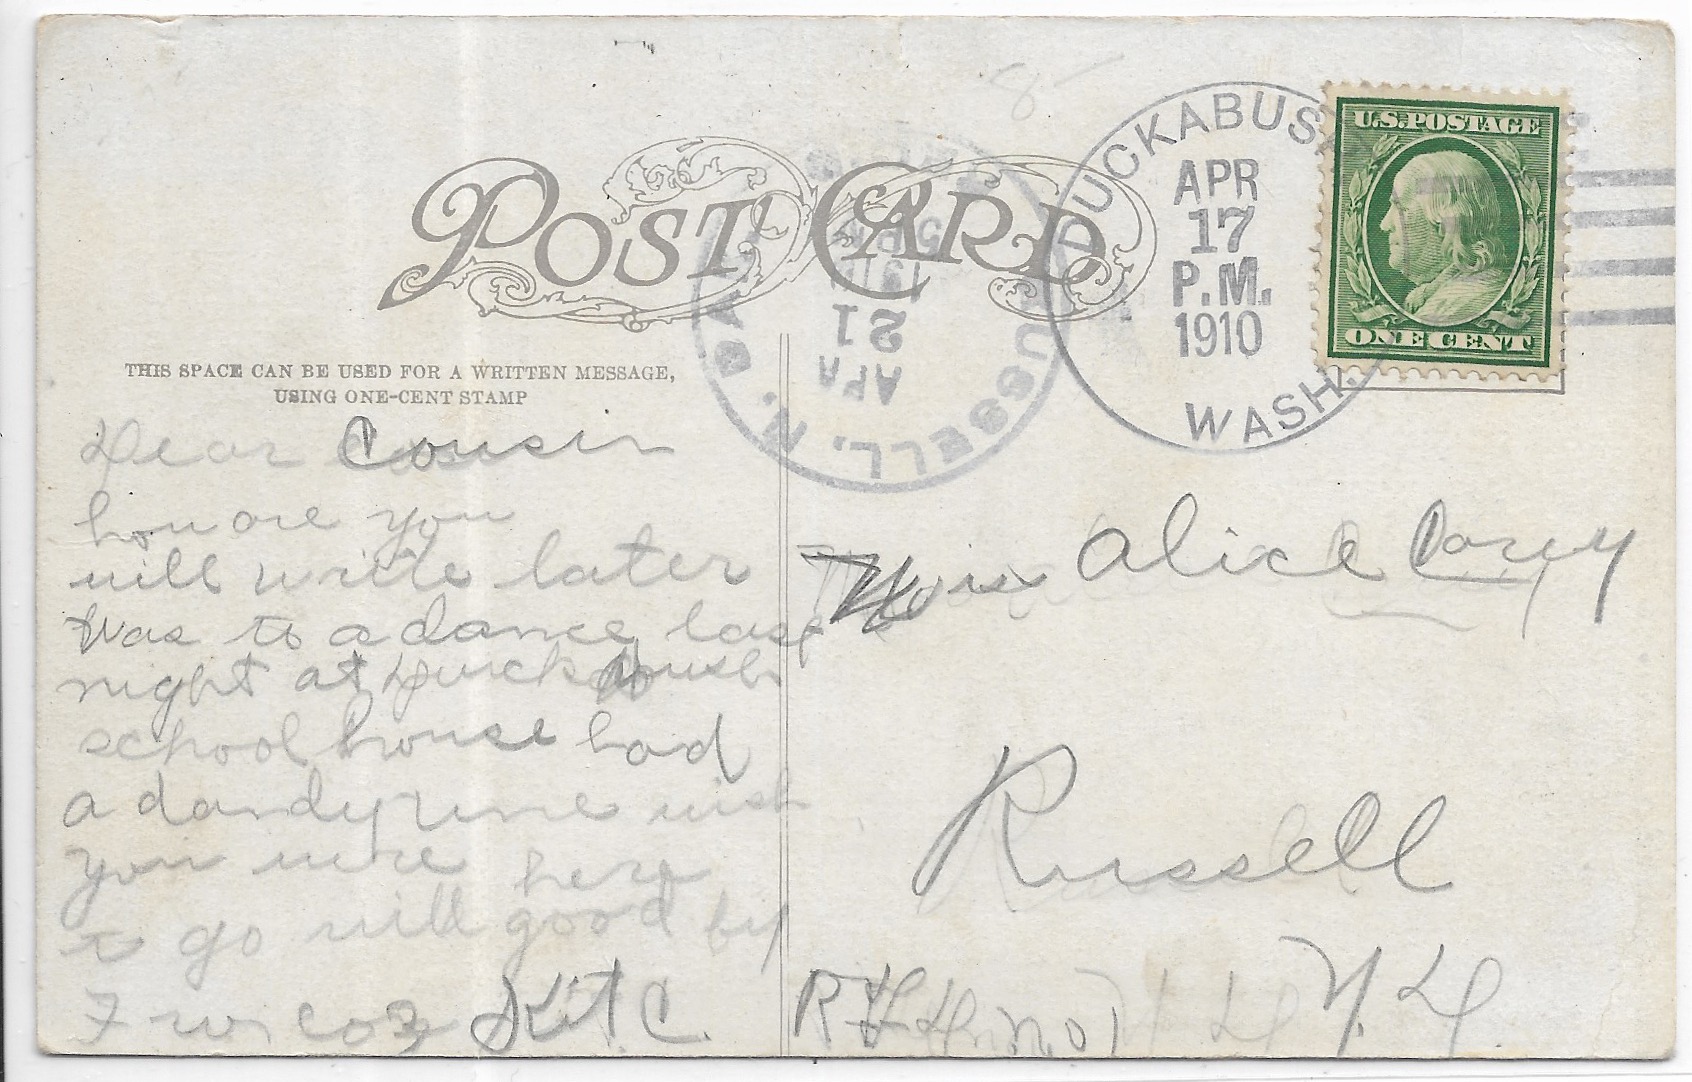 POST CARD
THIS SPACE CAN BE USED FOR A WRITTEN MESSAGE,
USING ONE-CENT STAMP
DUCKABUSH
APR
17
P.M.
1910
WASH.
U.S. POSTAGE
ONE CENT
RUSSELL, N.Y.
APR
21
1910
Dear Cousin
how are you
will write later
Was to a dance last
night at Duckabush
school house had
a dandy time wish
you were here
to go will good by
K.T.C.
Miss Alice Carey
Russell
N. Y.
R F D no 1